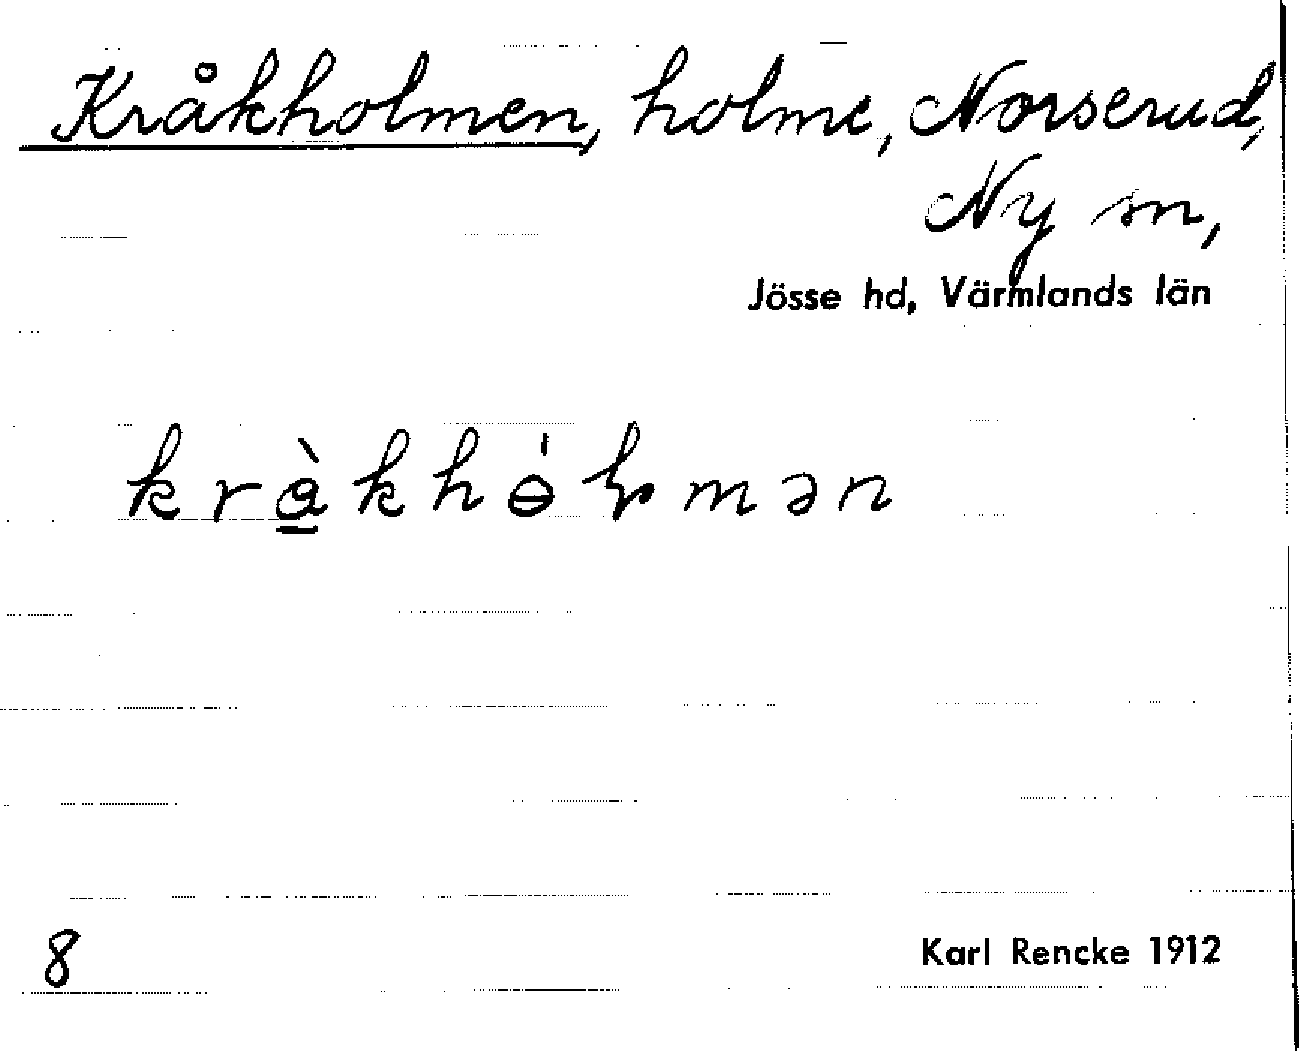 Kråkholmen, holme, Norserud,
Ny sn,
Jösse hd, Värmlands län
8
Karl Rencke 1912